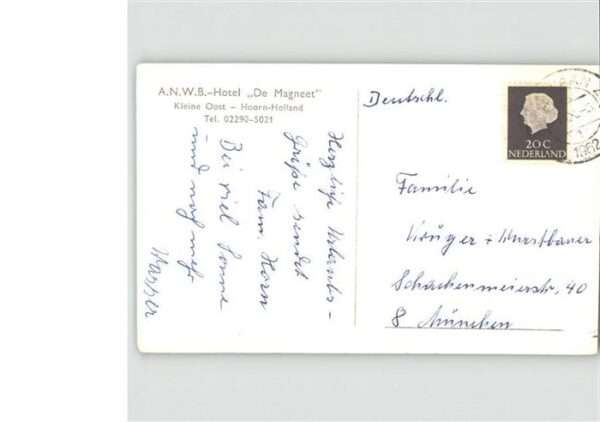 A.N.W.B.-Hotel „De Magneet"
Kleine Oost - Hoorn-Holland
Tel. 02290-5021
Herzliche Urlaubs-
grüße sendet
Fam. Horn
Bei viel Sonne
und noch mehr
Wasser
Deutschl.
20 C
NEDERLAND
1962
Familie
Krüger + Wurstbauer
Schachenmeierstr. 40
8 München